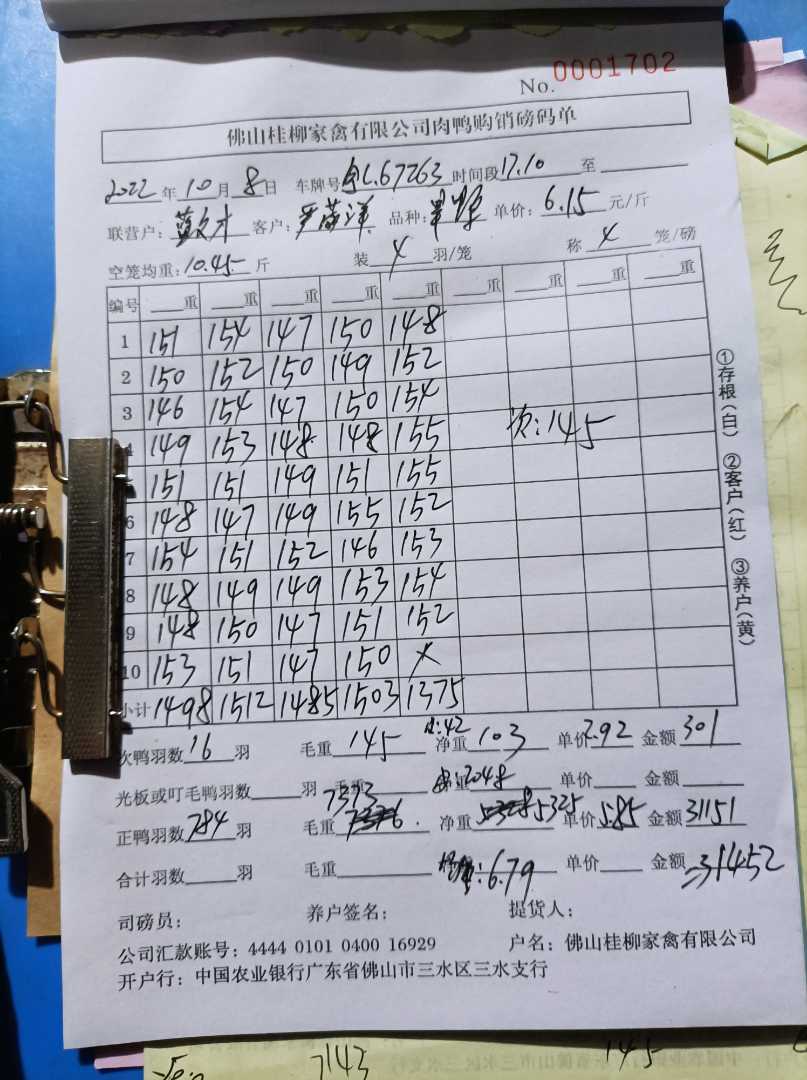 No. 0001702
佛山桂柳家禽有限公司肉鸭购销磅码单
2022 年 10 月 8 日 车牌号 67263 时间段 17.10 至
联营户: 客户: 品种: 单价: 6.15 元/斤
空笼均重: 10.45 斤 装 4 羽/笼 称 4 笼/磅
编号 重 重 重 重 重 重 重 重 重
1 151 154 147 150 148
2 150 152 150 149 152
3 146 154 147 150 154
149 153 148 148 155 次:145
151 151 149 151 155
6 148 147 149 155 152
7 154 151 152 146 153
8 148 149 149 153 154
9 148 150 147 151 152
10 153 151 147 150 ×
小计 1498 1512 1485 1503 1375
①存根(白) ②客户(红) ③养户(黄)
次鸭羽数 16 羽 毛重 145 净重 103 单价 2.92 金额 301
光板或叮毛鸭羽数 羽 毛重 2048 单价 金额
正鸭羽数 784 羽 毛重 7373 净重 5325 单价 5.85 金额 31151
合计羽数 羽 毛重 6.79 单价 金额 31452
司磅员: 养户签名: 提货人:
公司汇款账号: 4444 0101 0400 16929 户名: 佛山桂柳家禽有限公司
开户行: 中国农业银行广东省佛山市三水区三水支行
7143 145